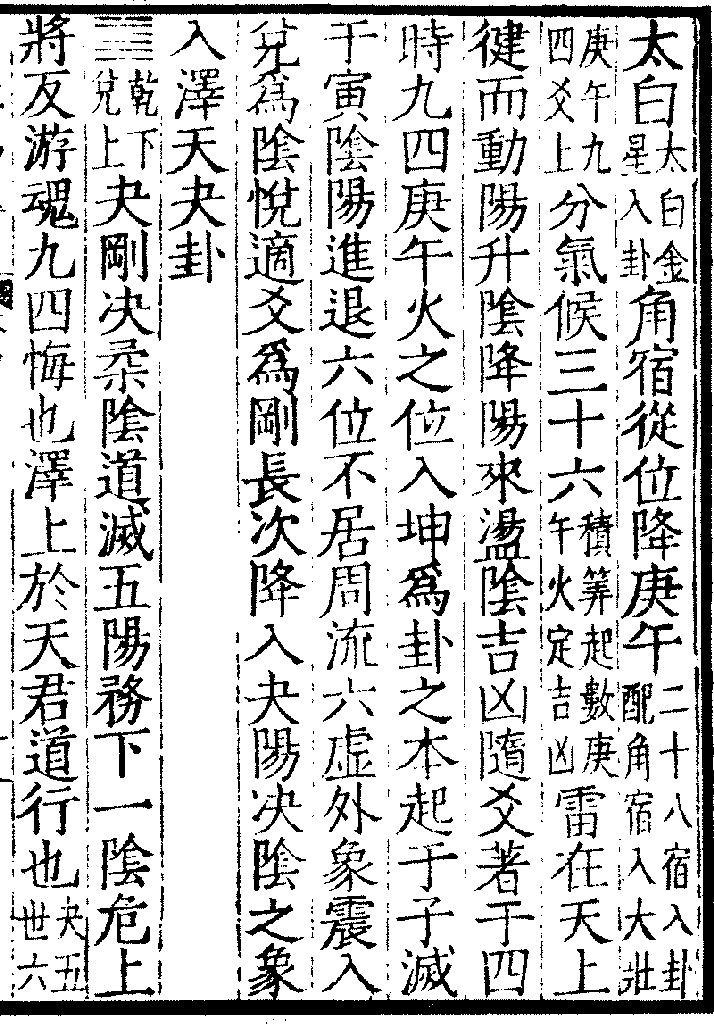 太白太白金星入卦角宿從位降庚午二十八宿入卦配角宿入大壯
庚午九四爻上分氣候三十六積筭起數庚午火定吉凶雷在天上
健而動陽升陰降陽來盪陰吉凶隨爻著于四
時九四庚午火之位入坤爲卦之本起于子滅
于寅陰陽進退六位不居周流六虛外象震入
兌爲陰悅適爻爲剛長次降入夬陽决陰之象
入澤天夬卦
䷪乾下兌上夬剛决柔陰道滅五陽務下一陰危上
將反游魂九四悔也澤上於天君道行也夬五世六